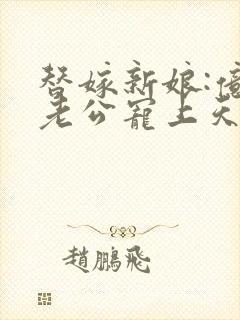 替嫁新娘:億
老公寵上天
趙鵬飛